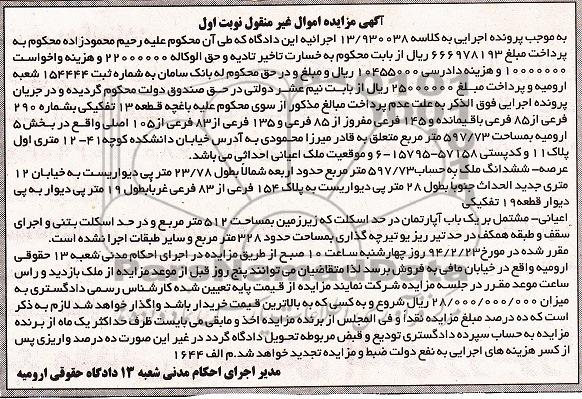 آگهی مزایده اموال غیر منقول نوبت اول
به موجب پرونده اجرایی به کلاسه ۱۳/۹۳۰۰۳۸ اجرائیه این دادگاه که طی آن محکوم علیه رحیم محمودزاده محکوم به
پرداخت مبلغ ۶۶۶۹۷۸۱۹۳ ریال از بابت محکوم به خسارت تاخیر تادیه و حق الوکاله ۲۲۰۰۰۰۰۰ و هزینه واخواست
۱۰۰۰۰۰۰۰ و هزینه دادرسی ۱۰۴۵۵۰۰۰ ریال و مبلغ و در حق محکوم له بانک سامان به شماره ثبت ۱۵۴۴۴۴ شعبه
ارومیه و پرداخت مبلغ ۲۵۰۰۰۰۰۰ ریال از بابت نیم عشر دولتی در حق صندوق دولت محکوم گردیده و در جریان
پرونده اجرایی فوق الذکر به علت عدم پرداخت مبالغ مذکور از سوی محکوم علیه باغچه قطعه ۱۳ تفکیکی بشماره ۲۹۰
فرعی از ۸۵ فرعی باقیمانده و ۱۴۵ فرعی مفروز از ۸۵ فرعی و ۱۳۵ فرعی از ۸۳ فرعی از ۱۰۵ اصلی واقع در بخش ۵
ارومیه بمساحت ۵۹۷/۷۳ متر مربع متعلق به قادر میرزا محمودی به آدرس خیابان دانشکده کوچه ۴۱- ۱۲ متری اول
پلاک ۱۱ و کدپستی ۵۷۱۵۸-۱۵۷۹۵-۶ و موقعیت ملک اعیانی احداثی می باشد.
عرصه- ششدانگ ملک به حساب ۵۹۷/۷۳ متر مربع حدود اربعه شمالا بطول ۲۳/۷۸ متر پی دیواریست به خیابان ۱۲
متری جدید الحداث جنوبا بطول ۲۸ متر پی دیواریست به پلاک ۱۵۴ فرعی از ۸۳ فرعی غربا بطول ۱۹ متر پی دیوار به پی
دیوار قطعه ۱۹ تفکیکی
اعیانی- مشتمل بر یک باب آپارتمان در حد اسکلت که زیرزمین بمساحت ۵۱۲ متر مربع و در حد اسکلت بتنی و اجرای
سقف و طبقه همکف در حد تیر ریز یو تیرچه گذاری بمساحت حدود ۳۴۸ متر مربع و سایر طبقات اجرا نشده است.
مقرر شده در مورخ ۹۴/۲/۲۳ روز چهارشنبه ساعت ۱۰ صبح از طریق مزایده در اجرای احکام مدنی شعبه ۱۳ حقوقی
ارومیه واقع در خیابان مافی به فروش برسد لذا متقاضیان می توانند پنج روز قبل از موعد مزایده از ملک بازدید و راس
ساعت موعد مقرر در جلسه مزایده شرکت نمایند مزایده از قیمت پایه تعیین شده کارشناس رسمی دادگستری به
میزان ۲۸/۰۰۰/۰۰۰/۰۰۰ ریال شروع و به کسی که به بالاترین قیمت خریدار باشد واگذار خواهد شد لازم به ذکر
است که ده درصد مبلغ مزایده نقدا و فی المجلس از برنده مزایده اخذ و مابقی می بایست ظرف حداکثر یک ماه از برنده
مزایده به حساب سپرده دادگستری تودیع و قبض مربوطه تحویل دادگاه گردد در غیر این صورت ده درصد واریزی پس
از کسر هزینه های اجرایی به نفع دولت ضبط و مزایده تجدید خواهد شد. م الف ۱۶۴۴
مدیر اجرای احکام مدنی شعبه ۱۳ دادگاه حقوقی ارومیه